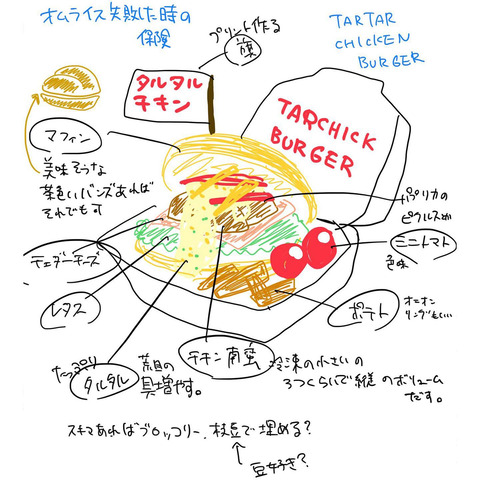 オムライス失敗した時の
保険
プリント作る
旗
TARTAR
CHICKEN
BURGER
タルタル
チキン
TARCHICK
BURGER
マフィン
美味そうな
茶色いバンズあれば
それでも可
パプリカの
ピクルスか
ミニトマト
色味
チェダーチーズ
レタス
ポテト
オニオン
リングもいい…
たっぷり
タルタル
荒目の
具増やす。
チキン南蛮
冷凍の小さいの
3つくらいで縦のボリューム
だす。
スキマあればブロッコリー、枝豆で埋める?
豆好き?